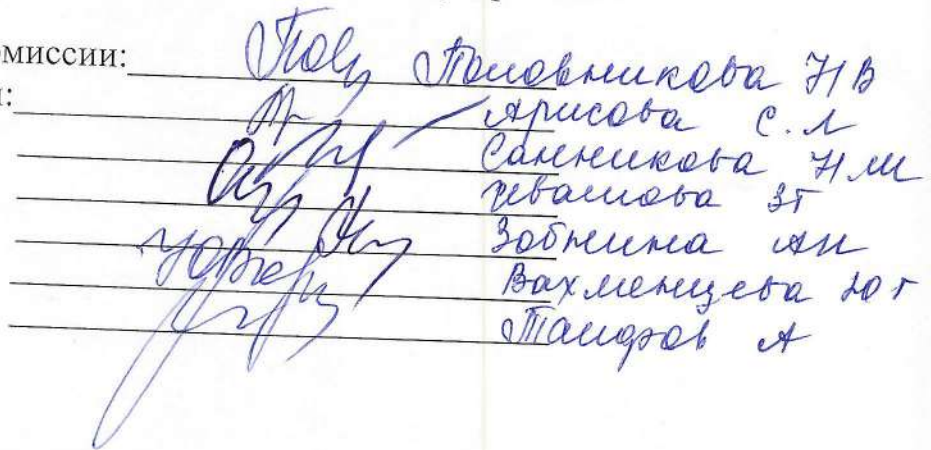 омиссии: Половникова Н В
: Арисова С. Л
Санникова Н М
З Г
Зобнина А Н
Вахменцева Ю Г
Таиров А